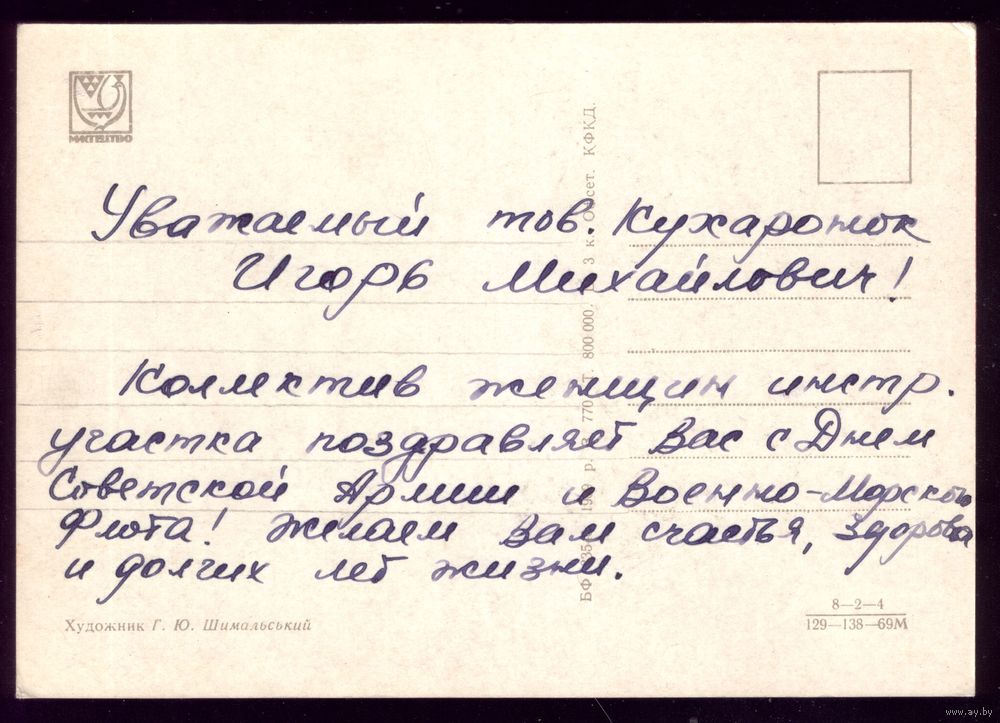 МИСТЕЦТВО
Уважаемый тов. Кухаронок
Игорь Михайлович!
Коллектив женщин инстр.
участка поздравляет Вас с Днем
Советской Армии и Военно-Морского
Флота! Желаем Вам счастья, здоровья
и долгих лет жизни.
Художник Г. Ю. Шимальський
8—2—4
129—138—69М
800 000. З к. Офсет. КФКД.
www.ay.by